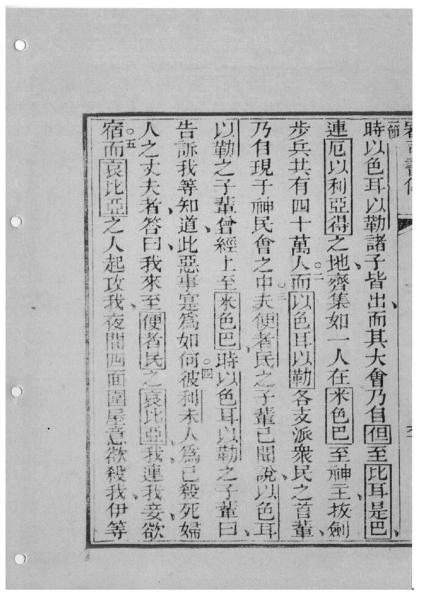 時以色耳以勒諸子皆出而其大會乃自但至比耳是巴
連厄以利亞得之地齊集如一人在米色巴至神主拔劍
步兵共有四十萬人而以色耳以勒各支派眾民之首輩
乃自現于神民會之中夫便者民之子輩已聞說以色耳
以勒之子輩曾經上至米色巴時以色耳以勒之子輩曰
告訴我等知道此惡事寔為如何彼利未人為已殺死婦
人之丈夫者答曰我來至便者民之哀比亞我連我妾欲
宿而哀比亞之人起攻我夜間四面圍屋意欲殺我伊等